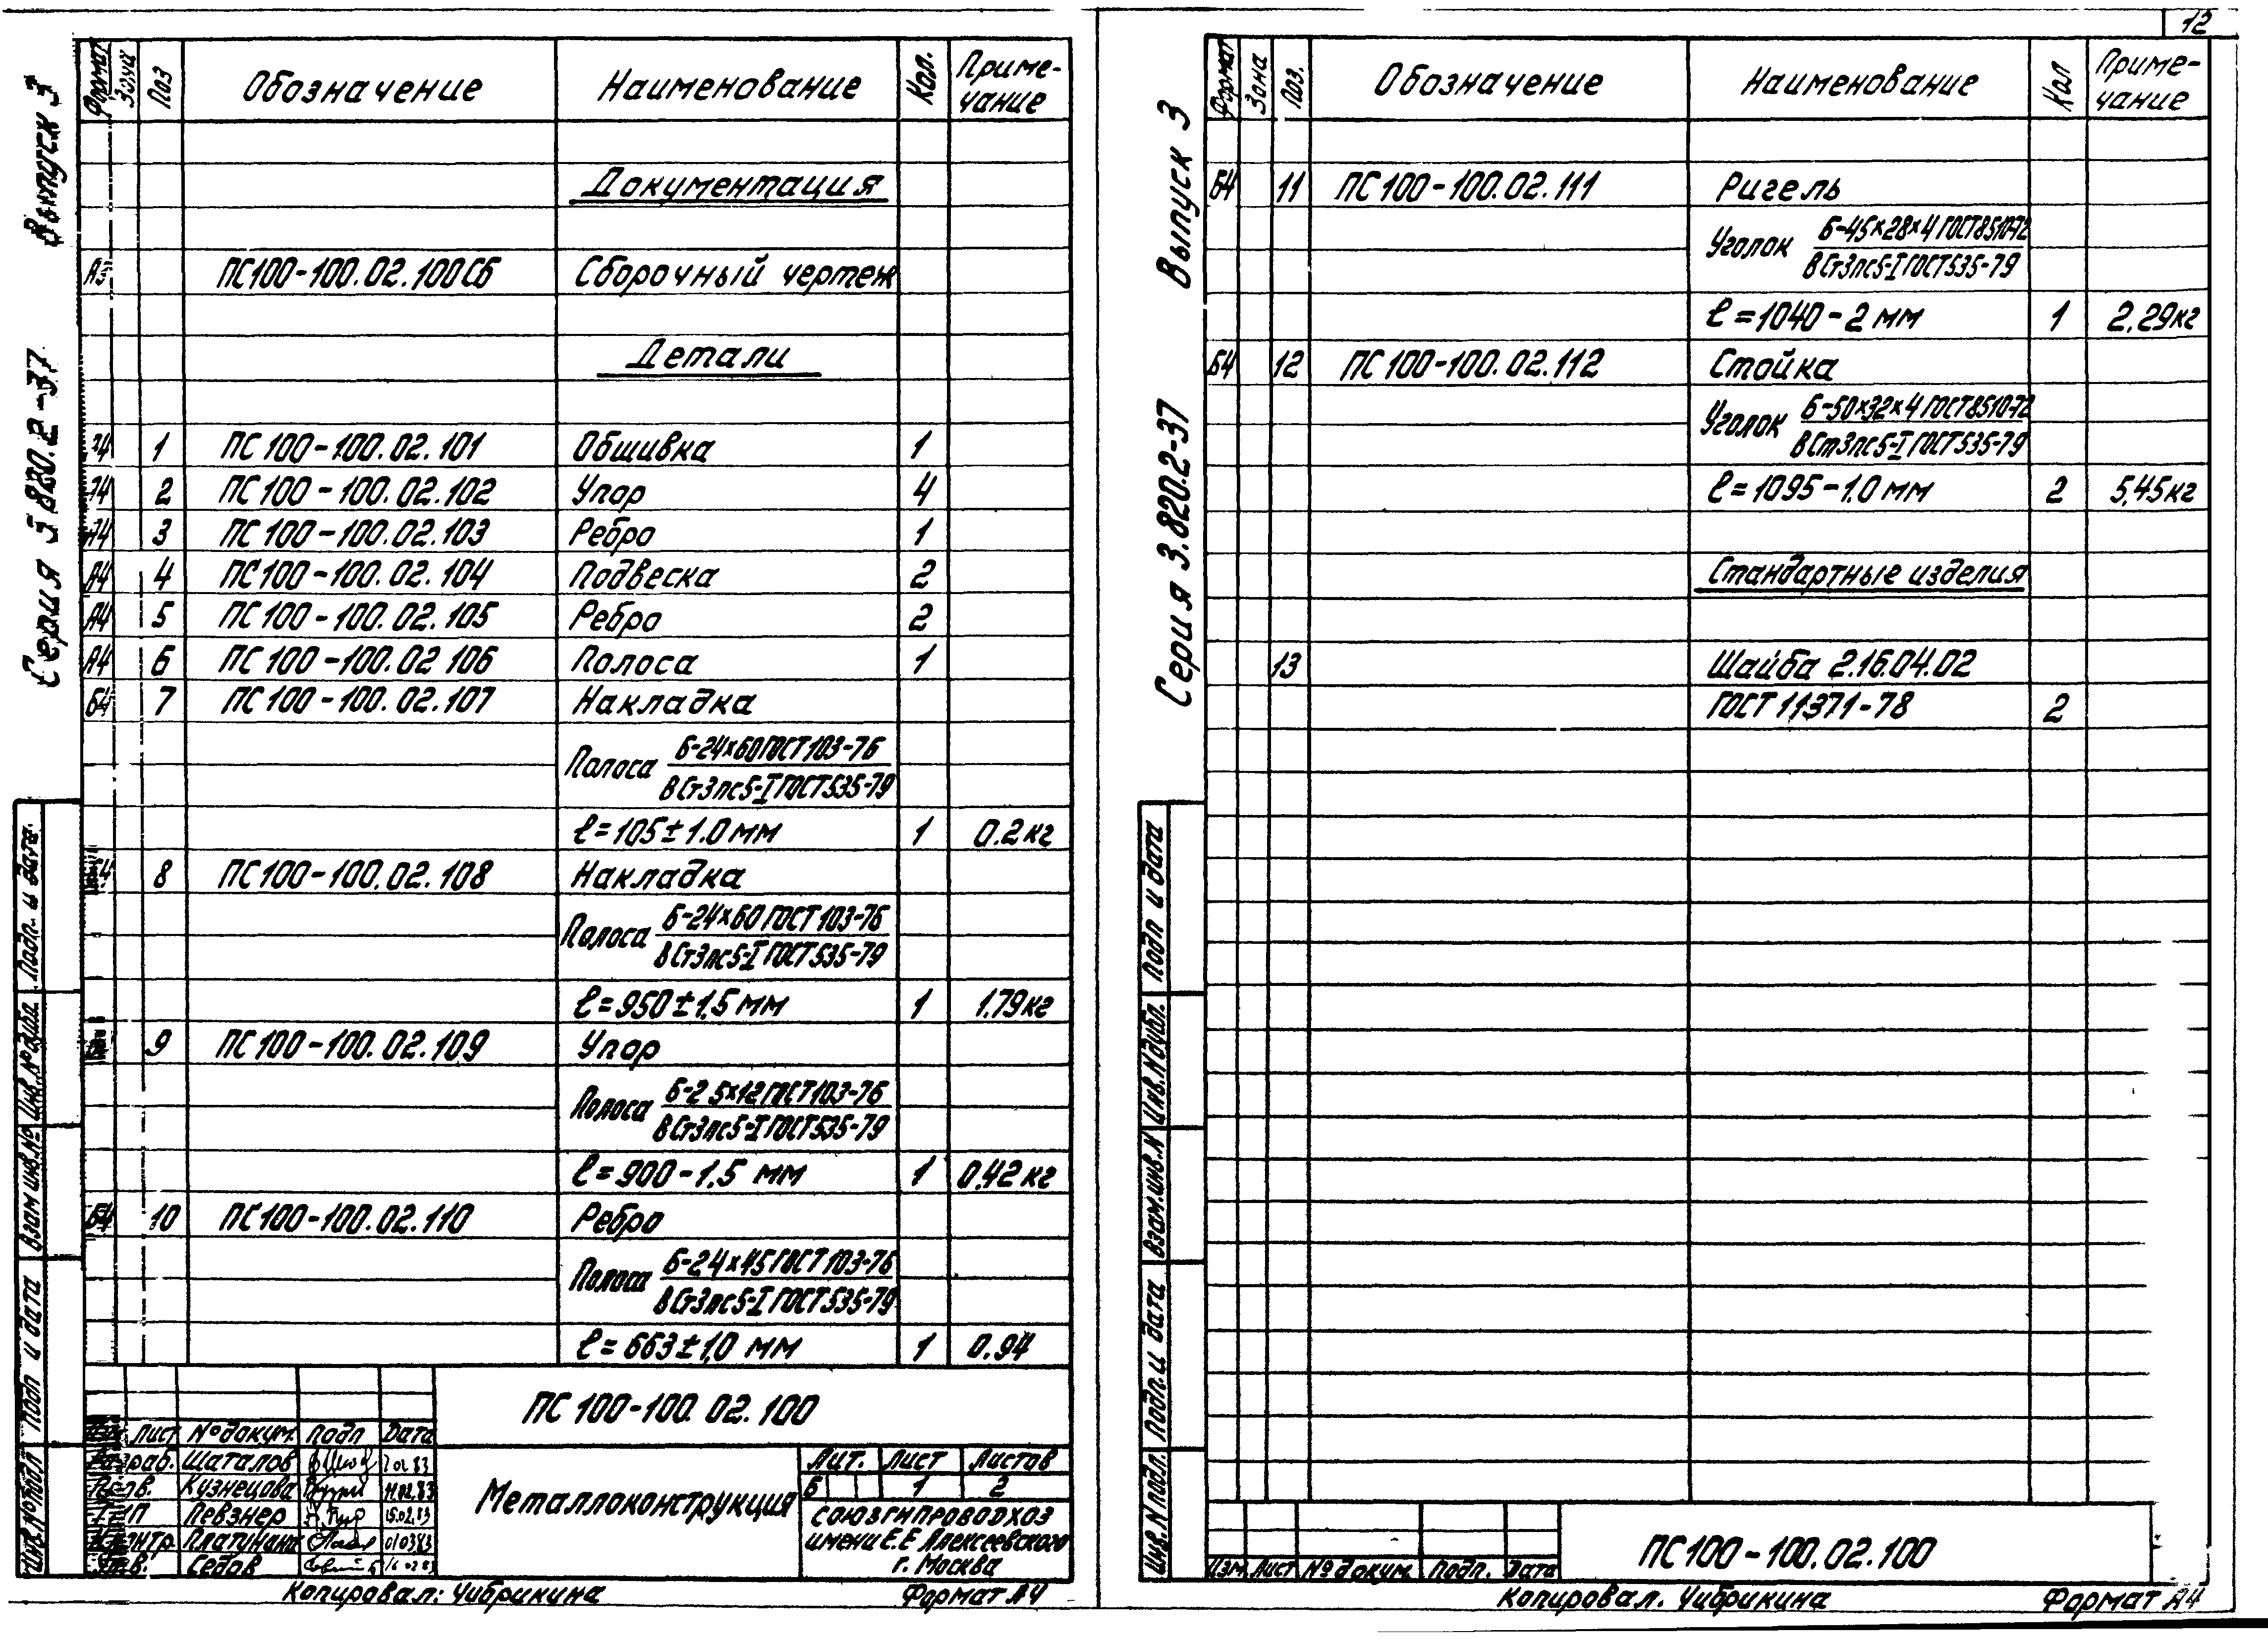 12
Серия 3.820.2-37 Выпуск 3
Формат Зона Поз Обозначение Наименование Кол. Приме-
чание
Документация
А3 ПС100-100.02.100СБ Сборочный чертеж
Детали
1 ПС100-100.02.101 Обшивка 1
2 ПС100-100.02.102 Упор 4
А4 3 ПС100-100.02.103 Ребро 1
А4 4 ПС100-100.02.104 Подвеска 2
А4 5 ПС100-100.02.105 Ребро 2
А4 6 ПС100-100.02 106 Полоса 1
Б4 7 ПС100-100.02.107 Накладка
Полоса Б-24×60 ГОСТ 103-76
ВСт3пс5-I ГОСТ 535-79
ℓ=105±1.0мм 1 0.2кг
8 ПС100-100.02.108 Накладка
Полоса Б-24×60 ГОСТ 103-76
ВСт3пс5-I ГОСТ 535-79
ℓ=950±1,5мм 1 1.79кг
9 ПС100-100.02.109 Упор
Полоса Б-2 5×12 ГОСТ 103-76
ВСт3пс5-I ГОСТ 535-79
ℓ=900-1.5 мм 1 0,42кг
Б4 10 ПС100-100.02.110 Ребро
Полоса Б-24×45 ГОСТ 103-76
ВСт3пс5-I ГОСТ 535-79
ℓ=663±1,0 мм 1 0.94
ПС 100-100.02.100
Лист №докум. Подп Дата
Разраб. Шаталов
Пров. Кузнецова 11.02.83
ГИП Певзнер 15.02.83
Н.контр Платунина 010383
Утв. Седов
Металлоконструкция
Лит. Лист Листов
Б 1 2
СОЮЗГИПРОВОДХОЗ
имени Е.Е Алексеевского
г. Москва
Копировал: Чибрикина Формат А4
Подп. и дата
Инв.№дубл.
Взам инв.№
Подп и дата
Инв.№подл
Серия 3.820.2-37 Выпуск 3
Формат Зона Поз. Обозначение Наименование Кол Приме-
чание
Б4 11 ПС100-100.02.111 Ригель
Уголок Б-45×28×4 ГОСТ8510-72
ВСт3пс5-I ГОСТ535-79
ℓ=1040-2мм 1 2,29кг
Б4 12 ПС100-100.02.112 Стойка
Уголок Б-50×32×4 ГОСТ8510-72
ВСт3пс5-I ГОСТ535-79
ℓ=1095-1.0мм 2 5,45кг
Стандартные изделия
13 Шайба 2.16.04.02
ГОСТ 11371-78 2
Подп и дата
Инв.Nдубл.
Взам.инв.N
Подп. и дата
Инв.Nподл.
Изм Лист №докум. Подп. Дата
ПС100-100.02.100
Копировал. Чибрикина Формат А4